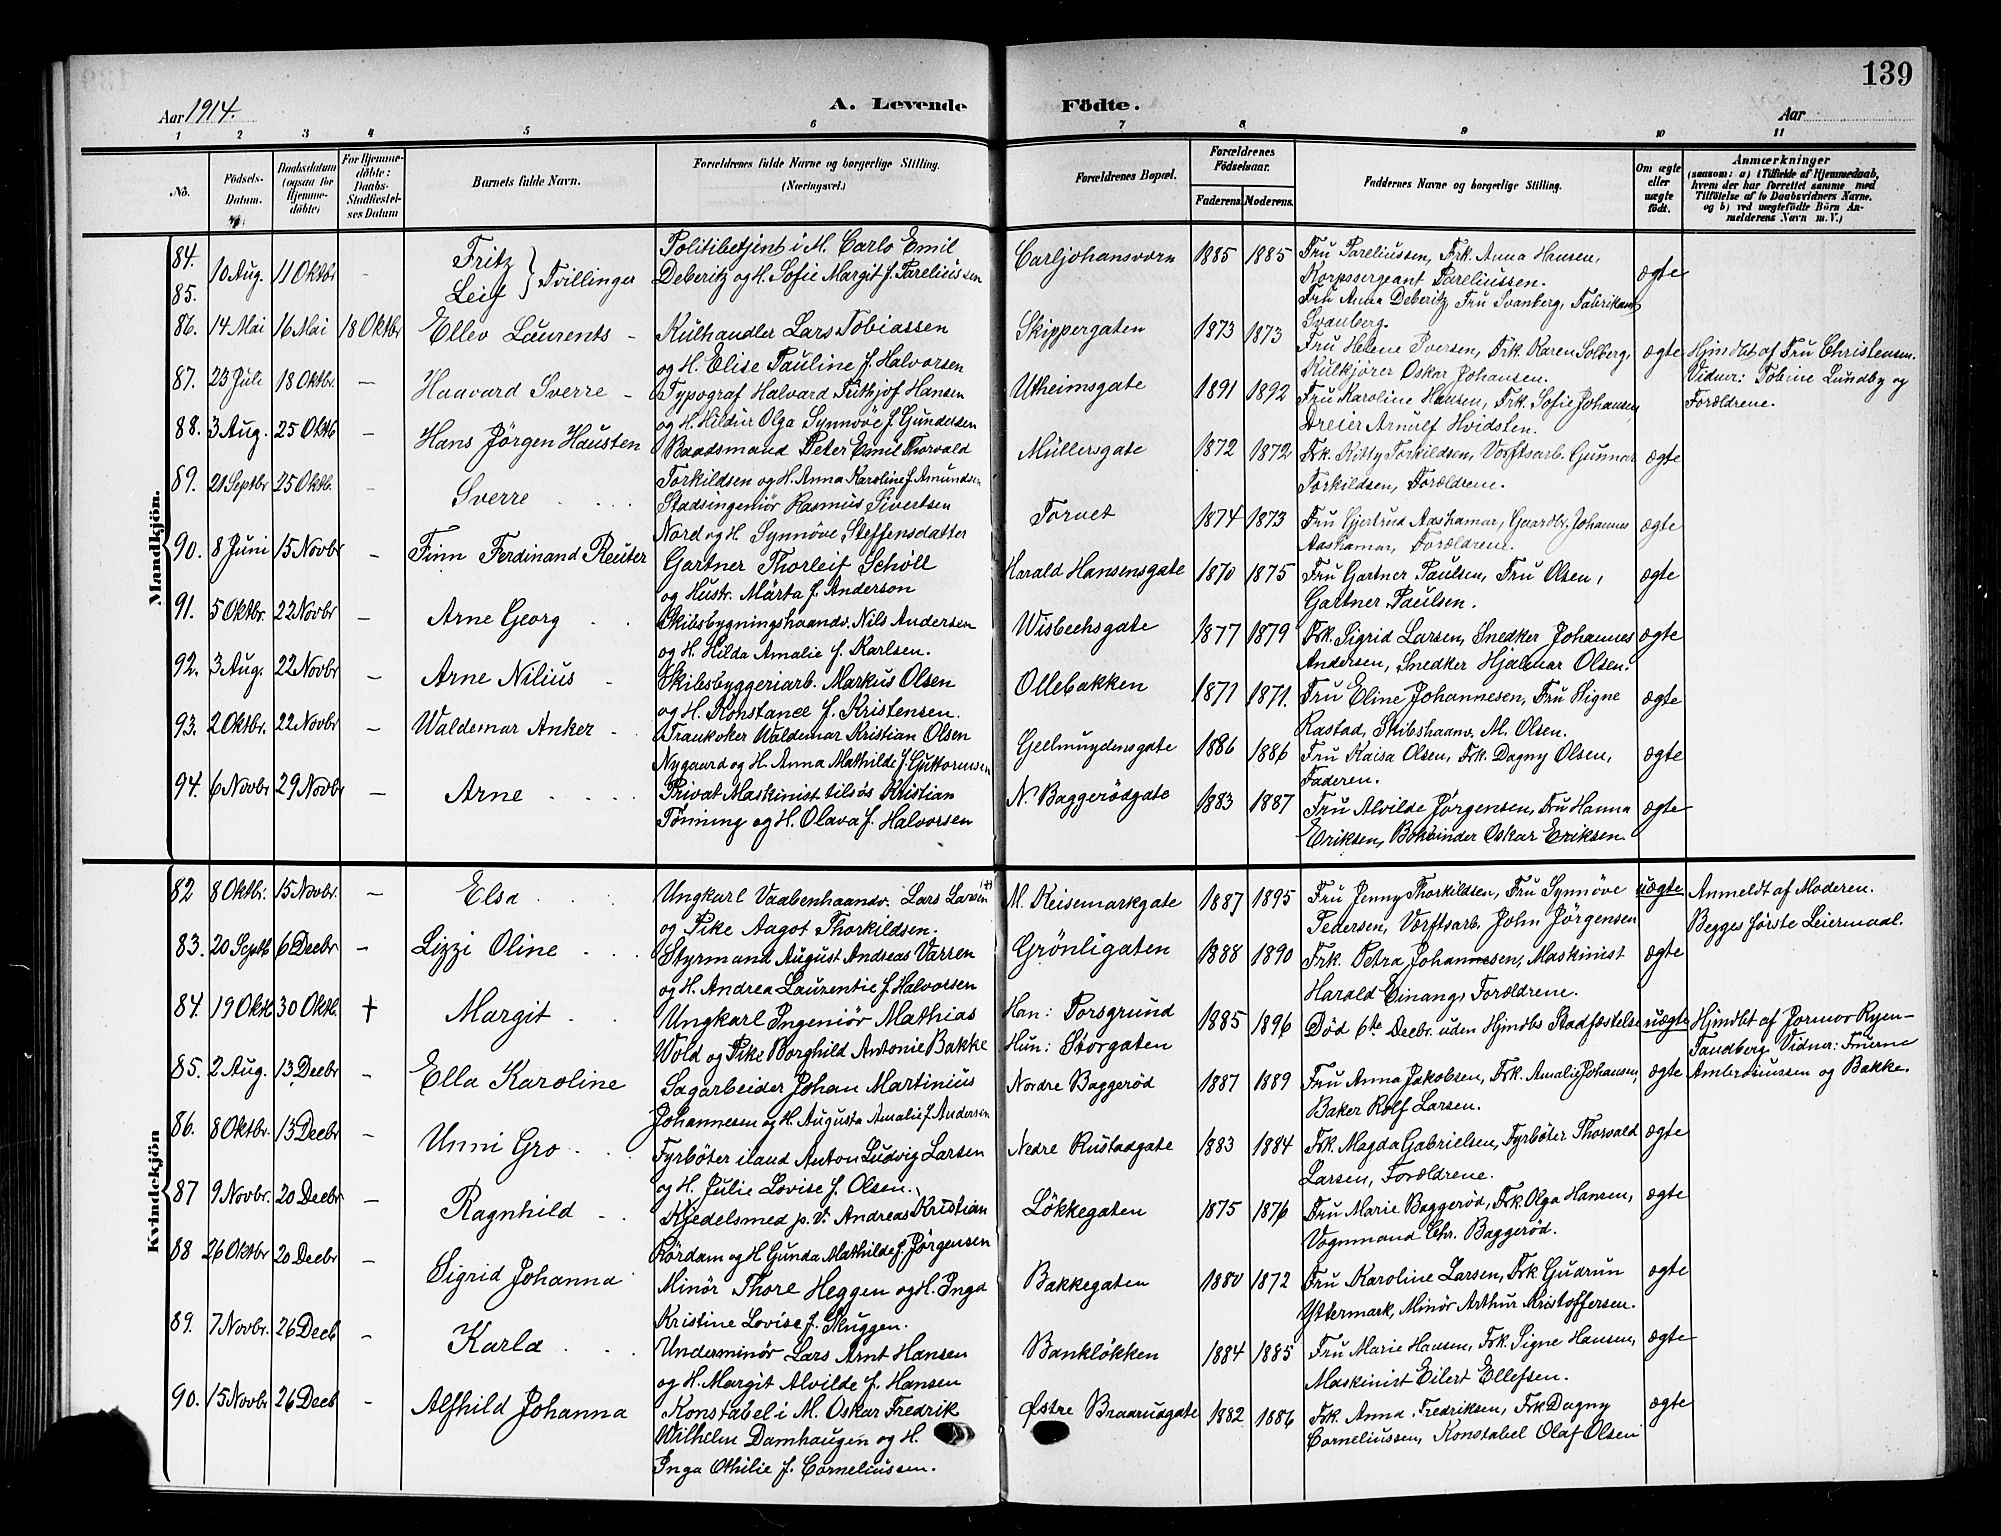 139
Aar 1914.
A. Levende Födte.
Aar
1 2 3 4 5 6 7 8 9 10 11
No.
Födsels-Datum.
Daabsdatum (ogsaa for Hjemmedöbte)
For Hjemmedöbte: Daabs-Stadfæstelses Datum
Barnets fulde Navn.
Forældrenes fulde Navne og borgerlige Stilling.
(Næringsvei.)
Forældrenes Bopæl.
Forældrenes Födselsaar.
Faderens. Moderens.
Faddernes Navne og borgerlige Stilling.
Om ægte eller uægte födt.
Anmærkninger
(saasom: a) i Tilfælde af Hjemmedaab, hvem der har forrettet samme med Tilföielse af to Daabsvidners Navne. og b) ved uægtefödte Börn Anmelderens Navn m. V.)
Mandkjön.
84. 85. 10 Aug. 11 Oktbr - Fritz Leif } Tvillinger
Politibetjent i M. Carlo Emil
Deberitz og H. Sofie Margit f. Pareliussen
Carljohansværn 1885 1885
Fru Pareliussen, Frk. Anna Hansen,
Korpssergeant Pareliussen.
Fru Anna Deberitz, Fru Svanberg, Fabrikant
Svanberg.
ægte
86. 14 Mai 16 Mai 18 Oktbr Ellev Laurents -
Kulhandler Lars Tobiassen
og H. Elise Pauline f. Halvorsen
Skippergaten 1873 1873
Fru Helene Iversen, Frk. Karen Solberg,
Kulkjører Oskar Johansen.
ægte
Hjmdbt af Fru Christensen.
Vidner: Tobine Lundby og
Forældrene.
87. 23 Juli 18 Oktbr. - Haavard Sverre -
Typograf Halvard Frithjof Hansen
og H. Hildur Olga Synnöve f. Gundersen
Utheimsgate 1891 1892
Fru Karoline Hansen, Frk. Sofie Johansen,
Dreier Arnulf Hvidsten.
88. 3 Aug. 25 Oktb - Hans Jörgen Hausten
Baadsmand Peter Emil Thorvald
Torkildsen og H. Anna Karoline f. Amundsen
Müllersgate 1872 1872
Frk. Kitty Torkildsen, Værftsarb. Gunnar
Torkildsen, Forældrene.
ægte
89. 21 Septbr 25 Oktb. - Sverre
Stadsingeniör Rasmus Sivertsen
Nord og H. Synnöve Steffensdatter
Torvet 1874 1873
Fru Gjertrud Aashamar, Gaardbr. Johannes
Aashamar, Forældrene.
ægte
90. 8 Juni 15 Novbr - Finn Ferdinand Reuter
Gartner Thorleif Schöll
og Hustr. Märta f. Anderson
Harald Hansensgate 1870 1875
Fru Gartner Paulsen, Fru Olsen,
Gartner Paulsen.
ægte
91. 5 Oktbr. 22 Novbr - Arne Georg
Skibsbygningshaandv. Nils Andersen
og H. Hilda Amalie f. Karlsen.
Wisbechsgate 1877 1879
Frk. Sigrid Larsen, Snedker Johannes
Andersen, Snedker Hjalmar Olsen.
ægte
92. 3 Aug. 22 Novbr - Arne Nilius -
Skibsbyggeriarb. Markus Olsen
og H. Konstance f. Kristensen.
Ollebakken 1871 1871.
Fru Eline Johannesen, Fru Signe
Rastad, Skibshaanv. M. Olsen.
ægte
93. 2 Oktbr. 22 Novbr - Waldemar Anker -
Trankoker Waldemar Kristian Olsen
Nygaard og H. Anna Mathilde f. Guttormsen
Geelmuydensgate 1886 1886
Fru Kaisa Olsen, Frk. Dagny Olsen,
Faderen.
ægte
94. 6 Novbr 29 Novbr - Arne
Privat Maskinist tilsös Kristian
Tönning og H. Olava f. Halvorsen
N. Baggerödgate 1883 1887
Fru Alvilde Jørgensen, Fru Hanna
Eriksen, Bokbinder Oskar Eriksen.
ægte
Kvindekjön
82 8 Oktbr. 15 Novbr. - Elsa
Ungkarl Vaabenhaandv. Lars Larsen
og Pike Aagot Thorkildsen.
M. Reisemarkgate 1887 1895
Fru Jenny Thorkildsen, Fru Synnöve
Pedersen, Værftsarb. John Jörgensen
uægte
Anmeldt af Moderen.
Begges förste Leiermaal.
83. 20 Septb 6 Decbr - Lizzi Oline
Styrmand August Andreas Varren
og H. Andrea Laurentie f. Halvorsen
Grönligaten 1888 1890
Frk. Petra Johannesen, Maskinist
Harald Einang, Forældrene.
ægte
84. 19 Oktb 30 Oktb. † Margit
Ungkarl Ingeniör Mathias
Wold og Pike Borghild Antonie Bakke
Han: Porsgrund
Hun: Storgaten
1885 1896
Död 6te Decbr. uden Hjmdbs Stadfæstelse
uægte
Hjmdbt af Jormor Ryen-
Tandberg. Vidner: Fruerne
Ambrosiussen og Bakke.
85. 2 Aug. 13 Decbr - Ella Karoline
Sagarbeider Johan Martinius
Johannesen og H. Augusta Amalie f. Andersen
Nordre Baggeröd 1887 1889
Fru Anna Jakobsen, Frk. Amalie Johansen,
Baker Rolf Larsen.
ægte
86. 8 Oktbr. 13 Decbr - Unni Gro
Fyrböter iland Anton Ludvig Larsen
og H. Julie Lovise f. Olsen.
Nedre Rustadgate 1883 1884
Frk. Magda Gabrielsen, Fyrböter Thorvald
Larsen, Forældrene.
ægte
87 9 Novbr. 20 Decbr - Ragnhild
Kjedelsmed p. V. Andreas Kristian
Rördam og H. Gunda Mathilde f. Jörgensen
Lökkegaten 1875 1876
Fru Marie Baggeröd, Frk. Olga Hansen,
Vognmand Chr. Baggeröd.
ægte
88 26 Oktbr 20 Decbr - Sigrid Johanna
Minör Thore Heggen og H. Inga
Kristine Lovise f. Skuggen.
Bakkegaten 1880 1872
Fru Karoline Larsen, Frk Gudrun
Yttermark, Minör Arthur Kristoffersen.
ægte
89. 7 Novbr. 26 Decb - Karla
Underminör Lars Arnt Hansen
og H. Margit Alvilde f. Hansen
Banklökken 1884 1885
Fru Marie Hansen, Frk. Signe Hansen,
Maskinist Eilert Ellefsen.
ægte
90. 15 Novbr 26 Decb - Alfhild Johanna
Konstabel i M. Oskar Fredrik
Wilhelm Damhaugen og H.
Inga Othilie f. Corneliussen.
Östre Braarudgate 1882 1886
Frk. Anna Fredriksen, Frk Dagny
Corneliussen, Konstabel Olaf Olsen
ægte